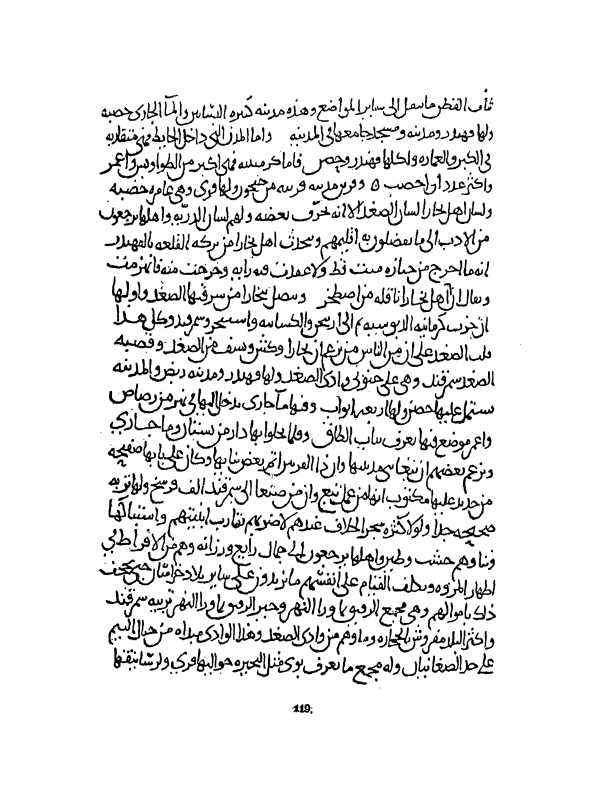 ثياب القطن ما ينقل الى ساير المواضع وهذه مدينه كثيره البساتين والما الجارى خصبه
ولها قهندز ومدينه ومسجد جامعها فى المدينه واما المدن التى داخل الحايط فهى متقاربه
فى الكبر والعماره ولكلها قهندز وحصن فاما كرمينيه فهى اكبر من الطواويس واعمر
واكثر عدد ا واخصب ٥ مدينه قريبه من خجنور ولها قرى وهى عامره خصبه
ولسان اهل بخارا لسان الصغد الا انه يحرّف بعضه ولهم لسان الدريّه واهلها يرجعون
من الادب الى ما يفضلون به اقليمهم ويتحدث اهل بخارا من بركه القلعه بالقهندز
انه ما اخرج من جنازه ميت قط ولا عقدت فيه رايه وخرجت منه فانهزمت
ويقال ان اهل بخارا ناقله من اصطخر ويتصل ببخارا من شرقيها الصغد واولها
اذ جزت كرمينيه الدبوسيه ثم الى اربنجن والكشانيه واستيجن وسمرقند وكل هذا
قلب الصغد على ان من الناس من يزعم ان بخارا وكش ونسف من الصغد وقصبه
الصغد سمرقند وهى على جنوبى وادى الصغد ولها قهندز ومدينه وربض والمدينه
يشتمل عليها حصن ولها اربعه ابواب وفيها ما جارى يدخل اليها فى نهر من رصاص
واعمر موضع فيها يعرف بباب الطاق وقلما يخلوا بها دار من بستان وما جارى
ويزعم بعضهم ان تبعا بنى مدينتها وان ذا القرنين اتم بعض بنايها وكان على بابها صفيحه
من حديد عليها مكتوب انه من عمل تبع وان من صنعا الى سمرقند الف فرسخ ولها تربه
صحيحه جدا ولولا كثره شجر الخلاف عندهم لاضر بهم تقارب ابنيتهم واشتباكها
وبناوهم خشب وطين واهلها يرجعون الى جمال رايع ورزانه وهم من الافراط فى
اظهار المروه وتكلف القيام على انفسهم ما يزيدون على ساير بلاد خراسان حتى يجحف
ذلك باموالهم وهى مجمع الرقيق بما ورا النهر وخير الرقيق بما ورا النهر تربيه سمرقند
واكثر البلد مفروش بالحجاره وماوهم من وادى الصغد وهذا الوادى مبداه من جبال البتم
على حد الصغانيان وله مجمع ما يعرف بوى مثل البحيره حواليها قرى
119.